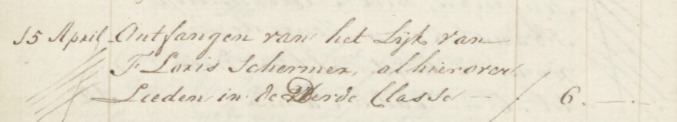 15 April Ontfangen van het Lijk van
Floris Schermer, alhier over
Leeden in de Derde Classe — / 6.—.